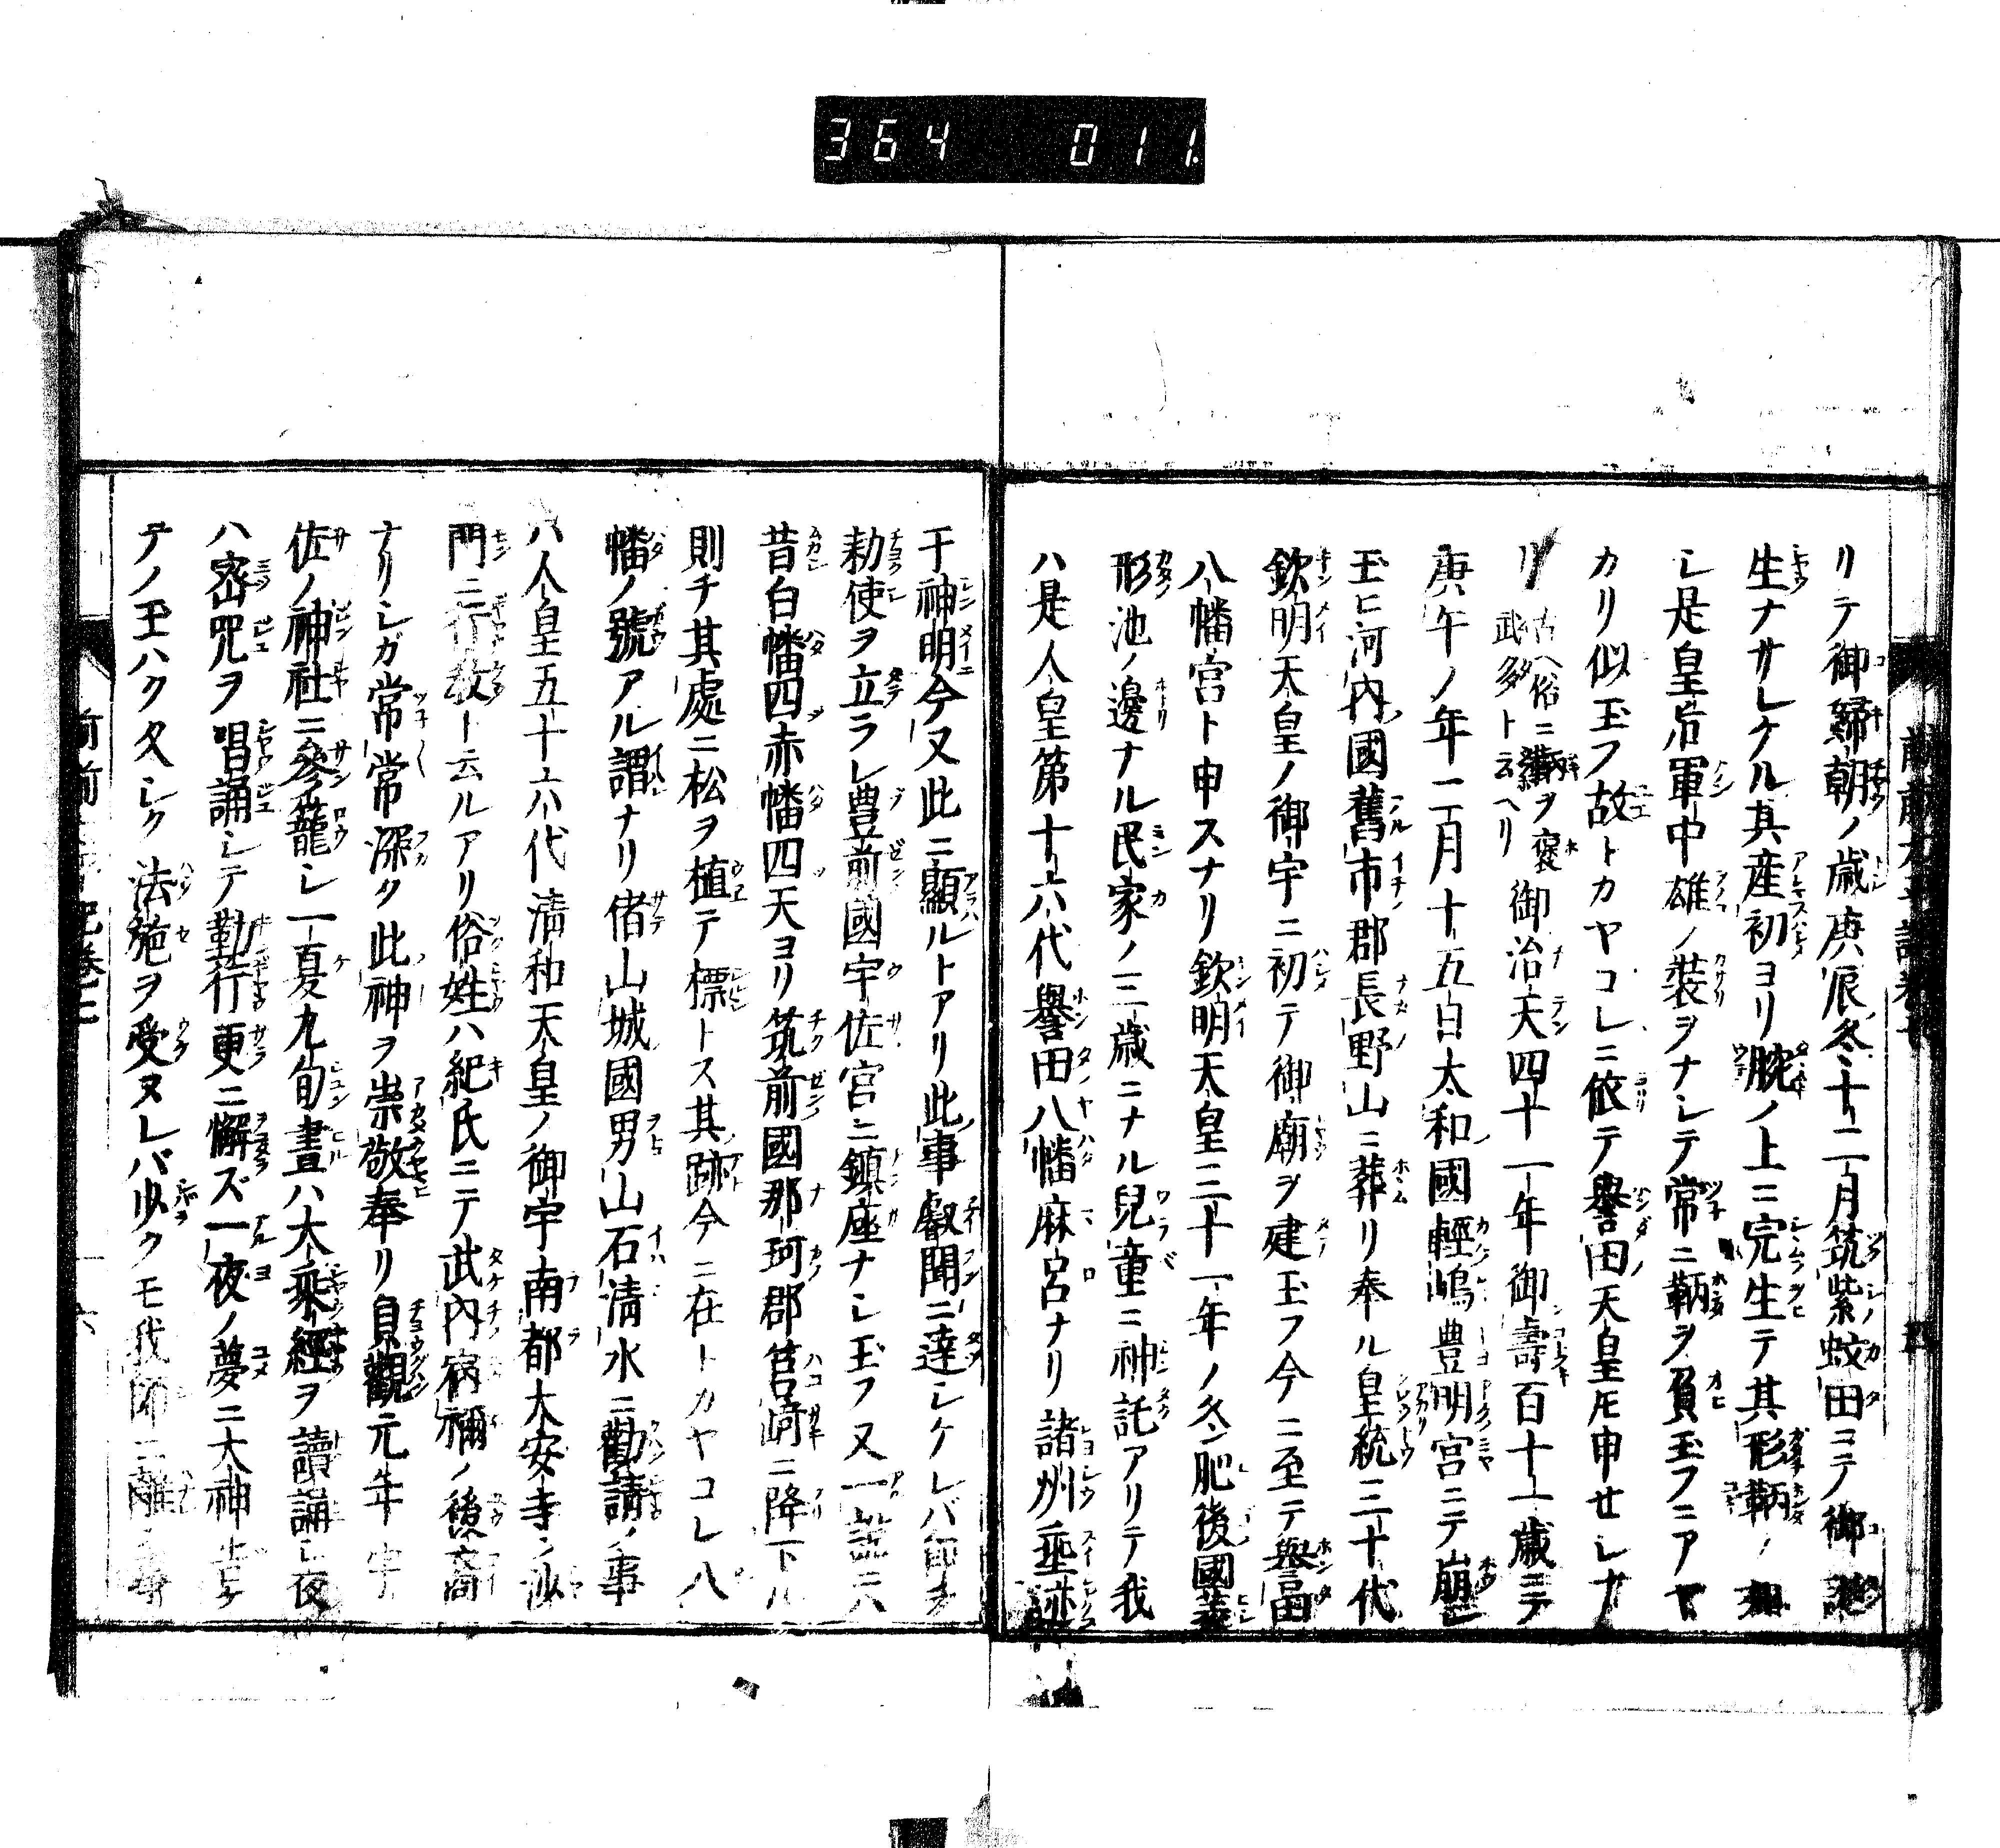 364 011
リテ御歸朝ノ歳庚辰冬十二月筑紫蚊田ニテ御誕
生ナサレケル其産初ヨリ腕ノ上ニ完生テ其形鞆ノ如
シ是皇后軍中雄ノ装ヲナシテ常ニ鞆ヲ負玉フニアヤ
カリ似玉フ故トカヤコレニ依テ譽田天皇𪜈申セシナ
リ 古ヘ俗ニ鞆ヲ褒武多ト云ヘリ 御治天四十一年御壽百十一歳ニテ
庚午ノ年二月十五日大和國輕嶋豊明宮ニテ崩シ
玉ヒ河内國舊市郡長野山ニ葬リ奉ル皇統三十代
欽明天皇ノ御宇ニ初テ御廟ヲ建玉フ今ニ至テ譽田
八幡宮ト申スナリ欽明天皇三十一年ノ冬肥後國菱
形池ノ邊ナル民家ノ三歳ニナル兒童ニ神託アリテ我
ハ是人皇第十六代譽田八幡麻呂ナリ諸州垂迹
于神明今又此ニ顯ルトアリ此事叡聞ニ達シケレバ即チ
勅使ヲ立ラレ豊前國宇佐宮ニ鎮座ナシ玉フ又一説ニハ
昔白幡四赤幡四天ヨリ筑前國那珂郡筥﨑ニ降下ル
則チ其處ニ松ヲ植テ標トス其跡今ニ在トカヤコレ八
幡ノ號アル謂ナリ偖山城國男山石清水ニ勸請ノ事
ハ人皇五十六代清和天皇ノ御宇南都大安寺ノ沙
門ニ行教ト云ルアリ俗姓ハ紀氏ニテ武内宿禰ノ後裔
ナリシガ常常深ク此神ヲ崇敬奉リ貞觀元年宇
佐ノ神社ニ參籠シ一夏九旬晝ハ大乘經ヲ讀誦シ夜
ハ密咒ヲ唱誦シテ勤行更ニ懈ズ一夜ノ夢ニ大神告
テノ玉ハク久シク法施ヲ受ヌレバ少クモ我師ニ離
前前太平記卷二
六